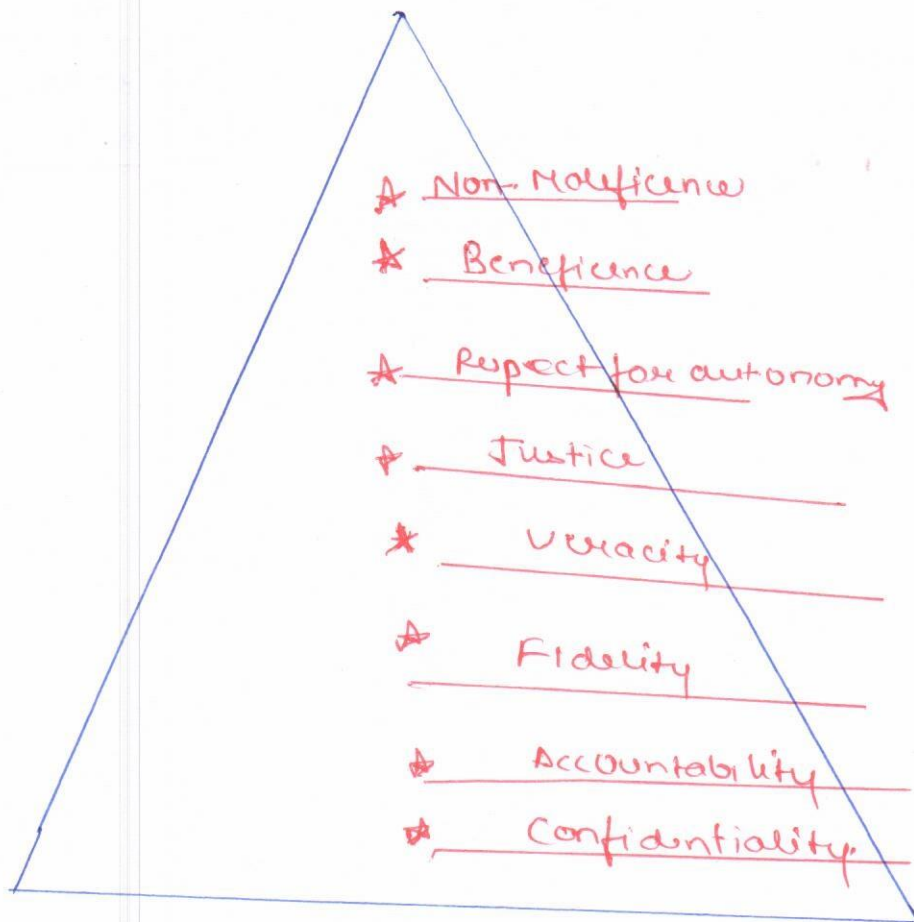 ☆ Non-Maleficence
☆ Beneficence
☆ Respect for autonomy
☆ Justice
☆ Veracity
☆ Fidelity
☆ Accountability
☆ Confidentiality.